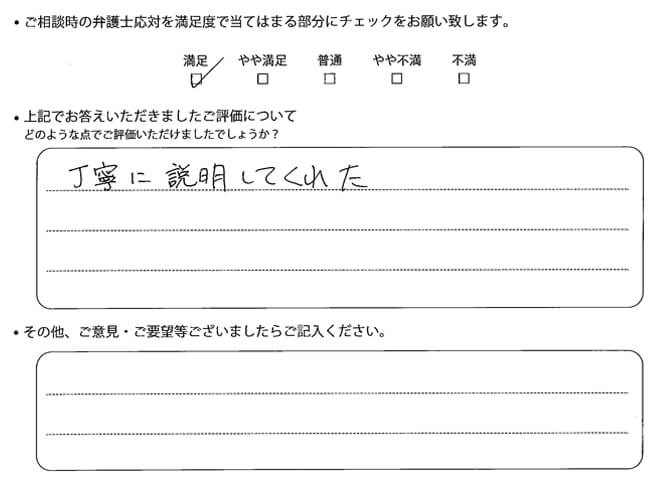 • ご相談時の弁護士応対を満足度で当てはまる部分にチェックをお願い致します。
満足 やや満足 普通 やや不満 不満
• 上記でお答えいただきましたご評価について
どのような点でご評価いただけましたでしょうか？
丁寧に説明してくれた
• その他、ご意見・ご要望等ございましたらご記入ください。